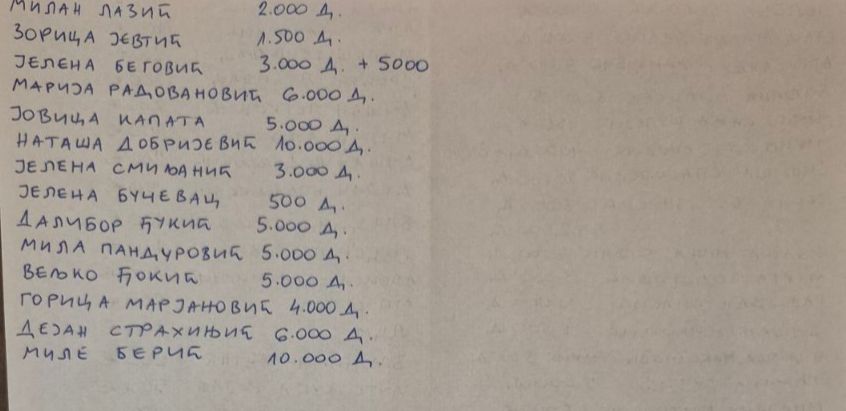 МИЛАН ЛАЗИЋ 2.000 Д.
ЗОРИЦА ЈЕВТИЋ 1.500 Д.
ЈЕЛЕНА БЕГОВИЋ 3.000 Д. + 5000
МАРИЈА РАДОВАНОВИЋ 6.000 Д.
ЈОВИЦА КАПАТА 5.000 Д.
НАТАША ДОБРИЈЕВИЋ 10.000 Д.
ЈЕЛЕНА СМИЉАНИЋ 3.000 Д.
ЈЕЛЕНА БУЧЕВАЦ 500 Д.
ДАЛИБОР ЂУКИЋ 5.000 Д.
МИЛА ПАНДУРОВИЋ 5.000 Д.
ВЕЉКО ЂОКИЋ 5.000 Д.
ГОРИЦА МАРЈАНОВИЋ 4.000 Д.
ДЕЈАН СТРАХИЊИЋ 6.000 Д.
МИЛЕ БЕРИЋ 10.000 Д.